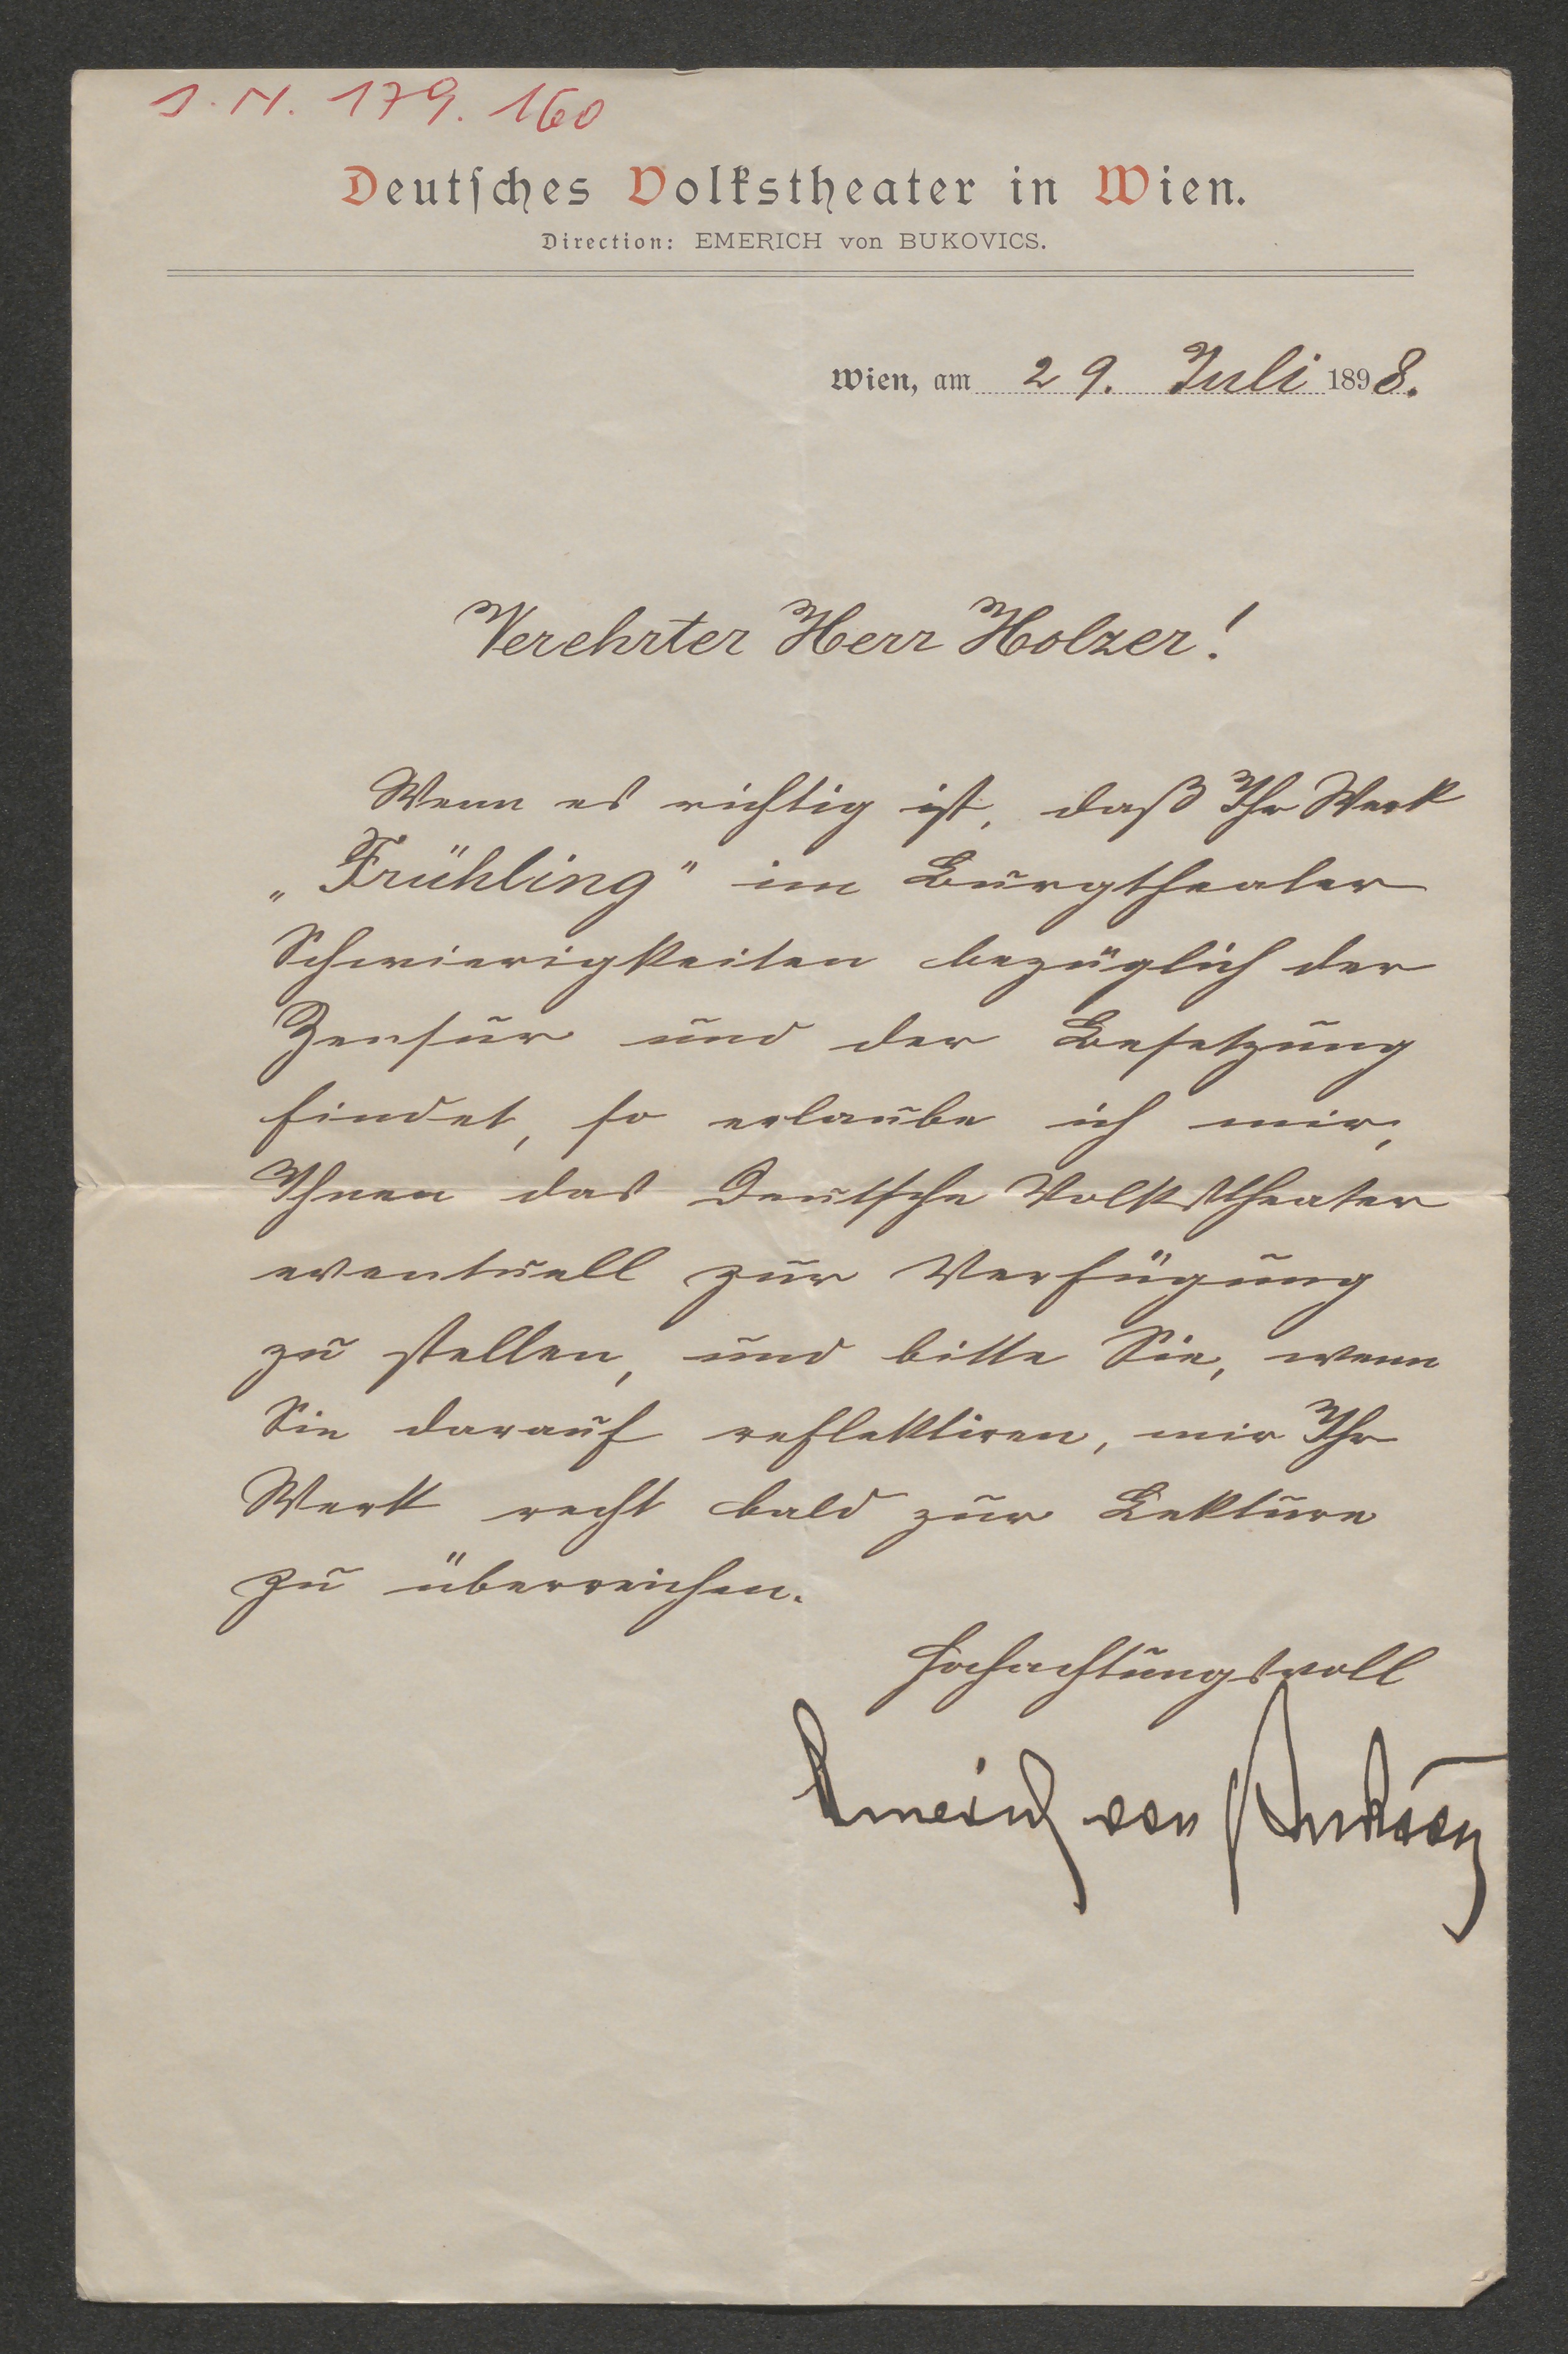 I. N. 179.160
Deutsches Volkstheater in Wien.
Direction: EMERICH von BUKOVICS.
Wien, am 29. Juli 1898.
Verehrter Herr Holzer!
Wenn es richtig ist, daß Ihr Werk
„Frühling" im Burgtheater
Schwierigkeiten bezüglich der
Zensur und der Besetzung
findet, so erlaube ich mir,
Ihnen das Deutsche Volkstheater
eventuell zur Verfügung
zu stellen, und bitte Sie, wenn
Sie darauf reflektiren, mir Ihr
Werk recht bald zur Lektüre
zu überreichen.
Hochachtungsvoll
Emerich von Bukovics